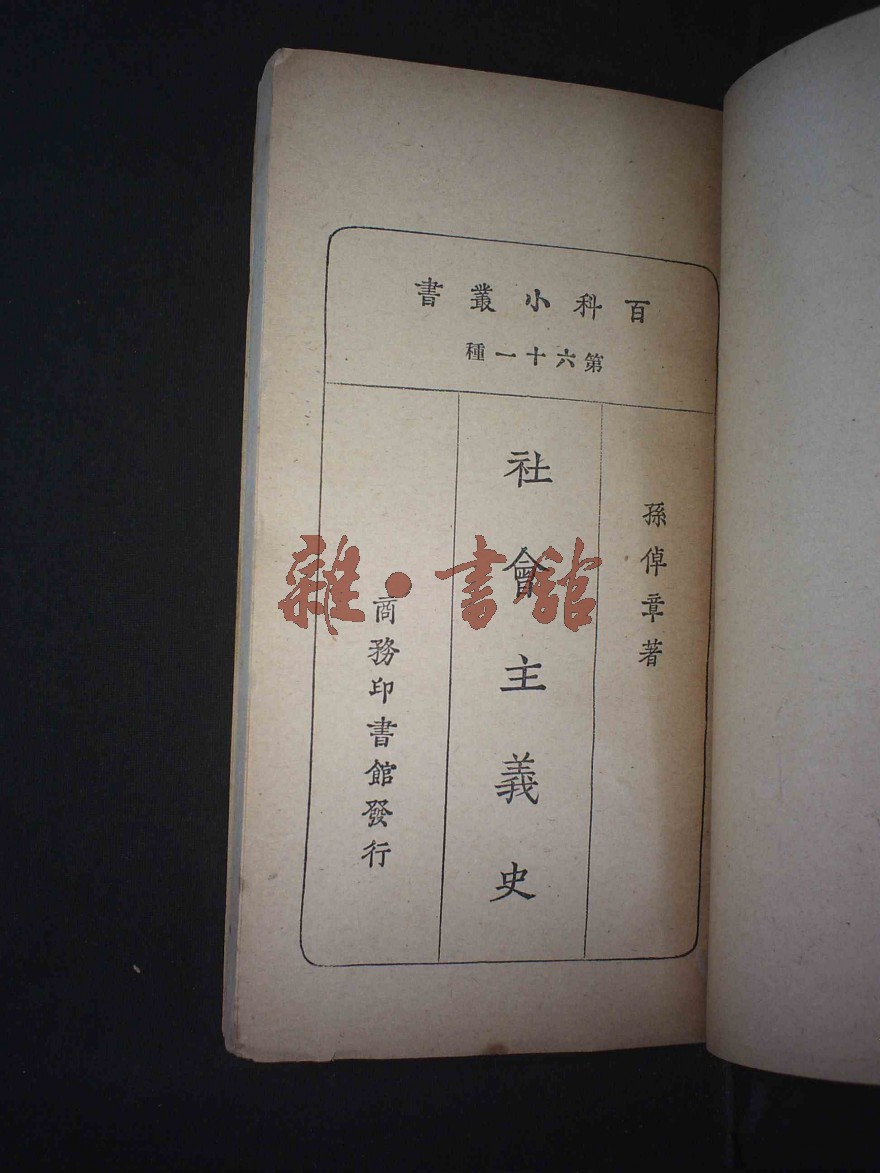 百科小叢書
第六十一種
孫倬章著
社會主義史
商務印書館發行
雜·書館